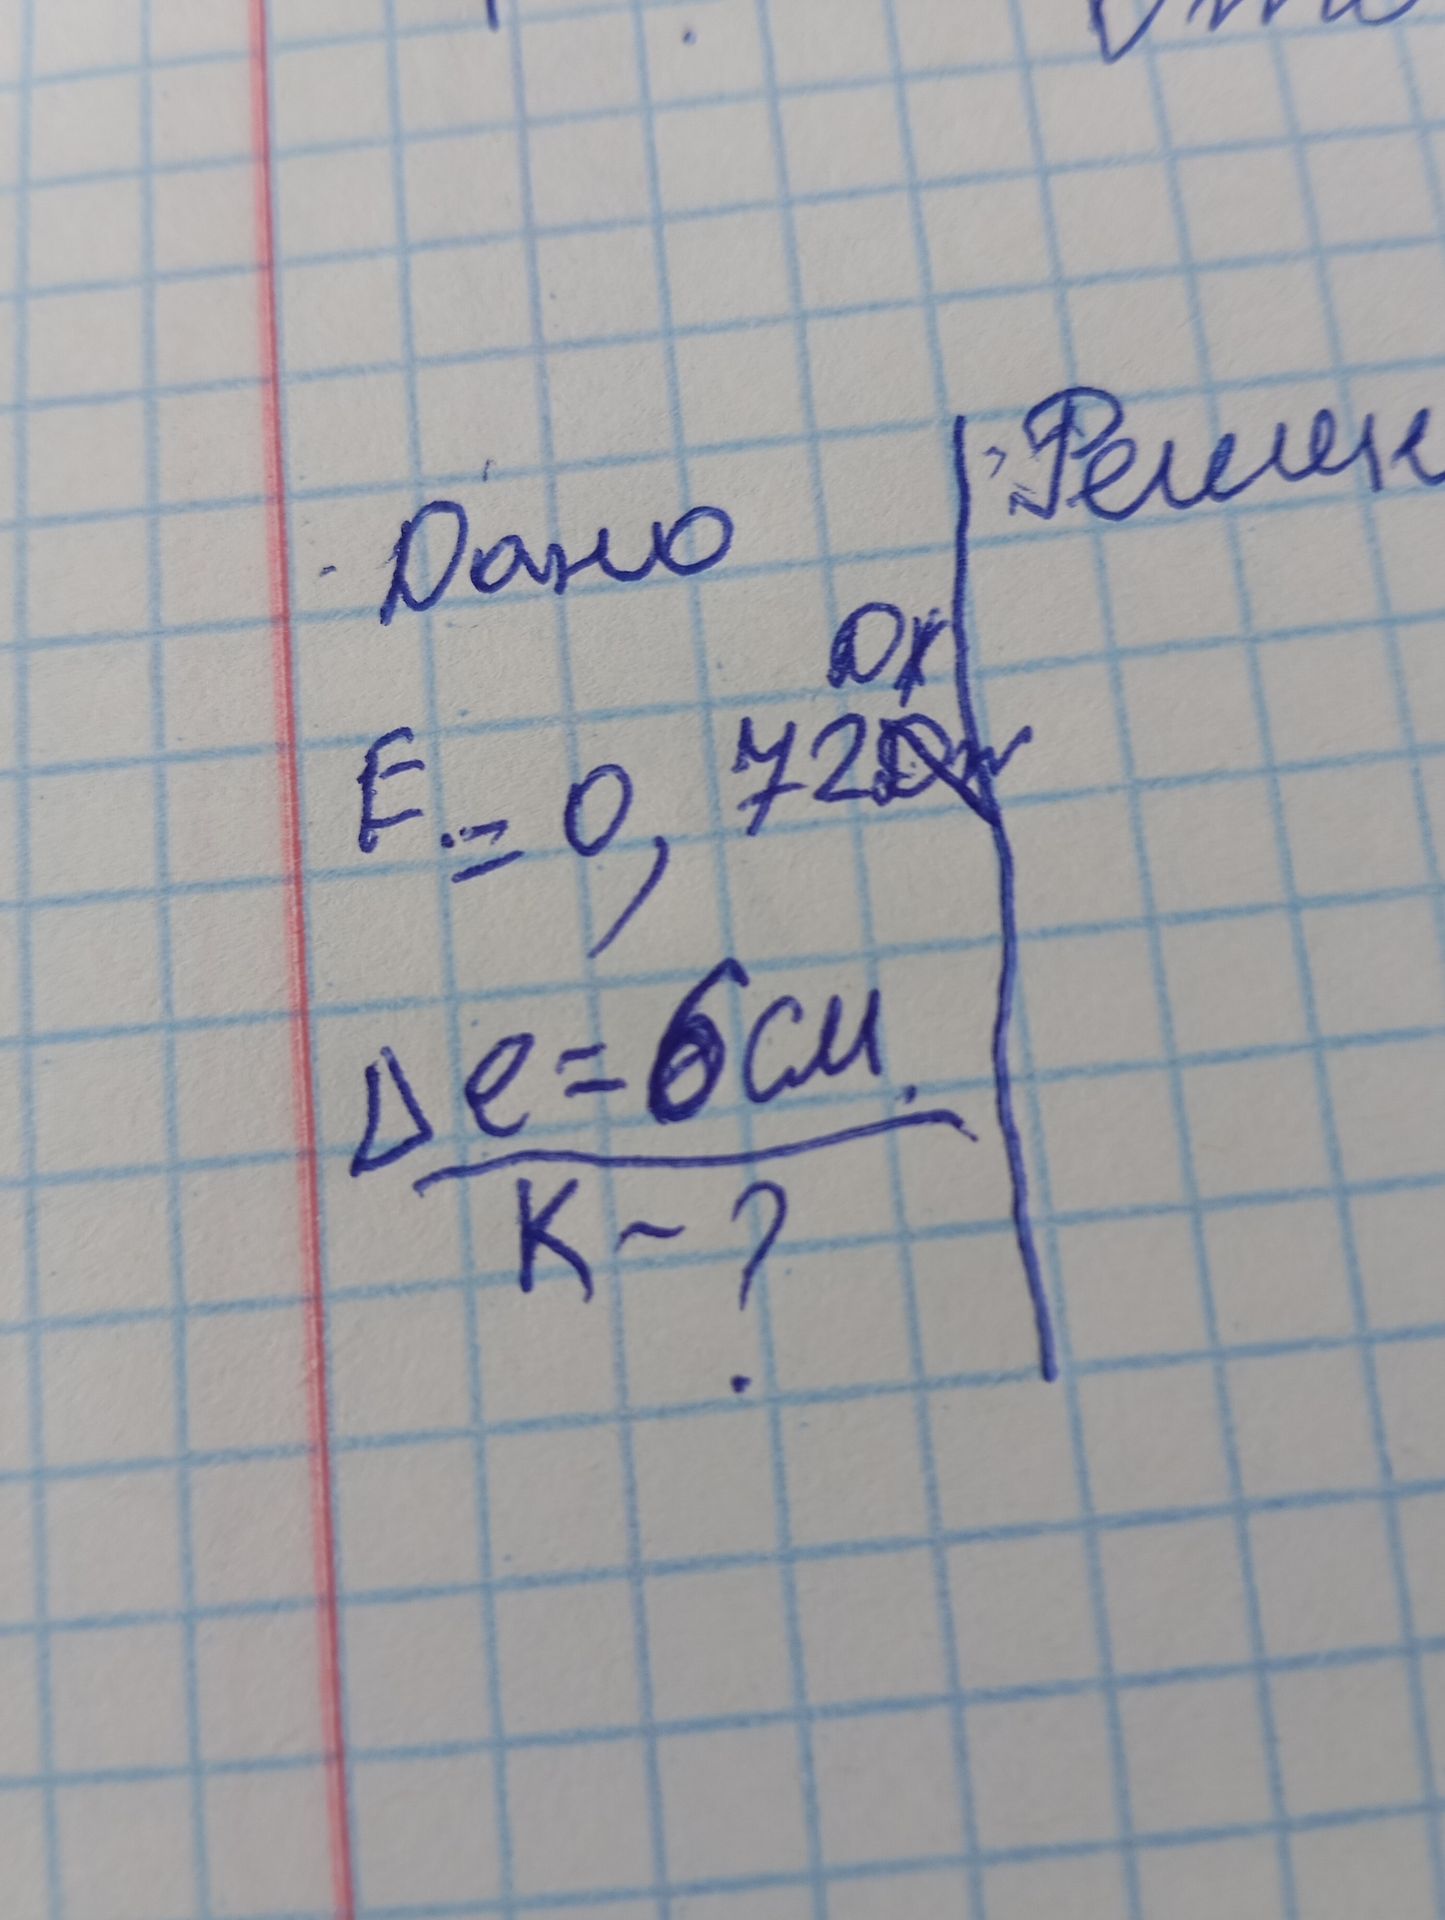 Дано
Решен
Дж
E = 0,72
Δe = 6 см.
K - ?